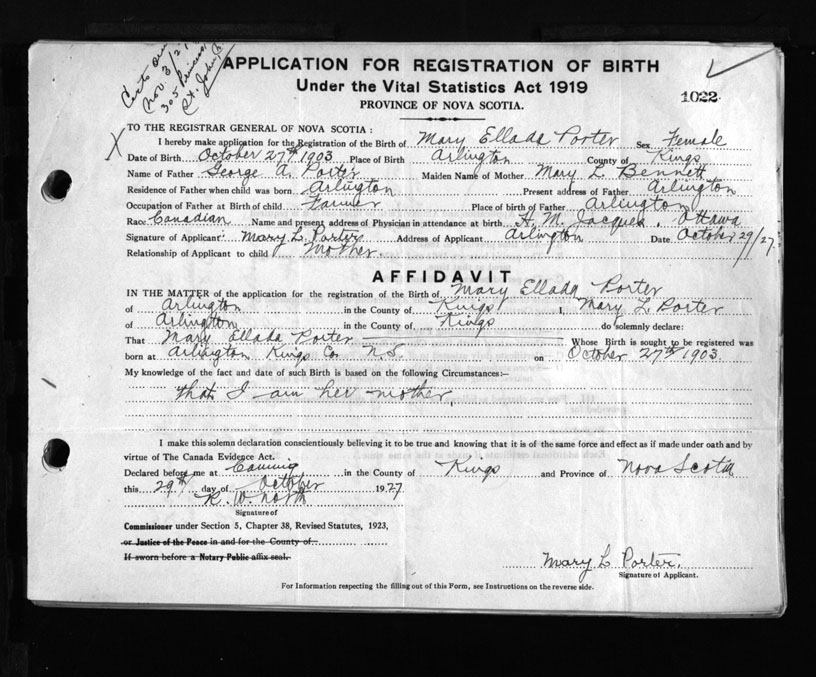 Certs
Nov 3/27
305 Princess
St. John
APPLICATION FOR REGISTRATION OF BIRTH
Under the Vital Statistics Act 1919
PROVINCE OF NOVA SCOTIA.
1022
X TO THE REGISTRAR GENERAL OF NOVA SCOTIA :
I hereby make application for the Registration of the Birth of Mary Ellada Porter Sex Female
Date of Birth October 27th 1903 Place of Birth Arlington County of Kings
Name of Father George A. Porter Maiden Name of Mother Mary L. Bennett
Residence of Father when child was born Arlington Present address of Father Arlington
Occupation of Father at Birth of child Farmer Place of birth of Father Arlington
Race Canadian Name and present address of Physician in attendance at birth H. M. Jacques, Ottawa
Signature of Applicant Mary L. Porter Address of Applicant Arlington Date October 29/27
Relationship of Applicant to child Mother.
AFFIDAVIT
IN THE MATTER of the application for the registration of the Birth of Mary Ellada Porter
of Arlington in the County of Kings I, Mary L Porter
of Arlington in the County of Kings do solemnly declare:
That Mary Ellada Porter Whose Birth is sought to be registered was
born at Arlington Kings Co. N.S. on October 27th 1903
My knowledge of the fact and date of such Birth is based on the following Circumstances:—
that I am her mother.
I make this solemn declaration conscientiously believing it to be true and knowing that it is of the same force and effect as if made under oath and by
virtue of The Canada Evidence Act.
Declared before me at Canning in the County of Kings and Province of Nova Scotia
this 29th day of October 1927
R. W. North
Signature of
Commissioner under Section 5, Chapter 38, Revised Statutes, 1923,
or Justice of the Peace in and for the County of
If sworn before a Notary Public affix seal.
Mary L Porter.
Signature of Applicant.
For Information respecting the filling out of this Form, see Instructions on the reverse side.